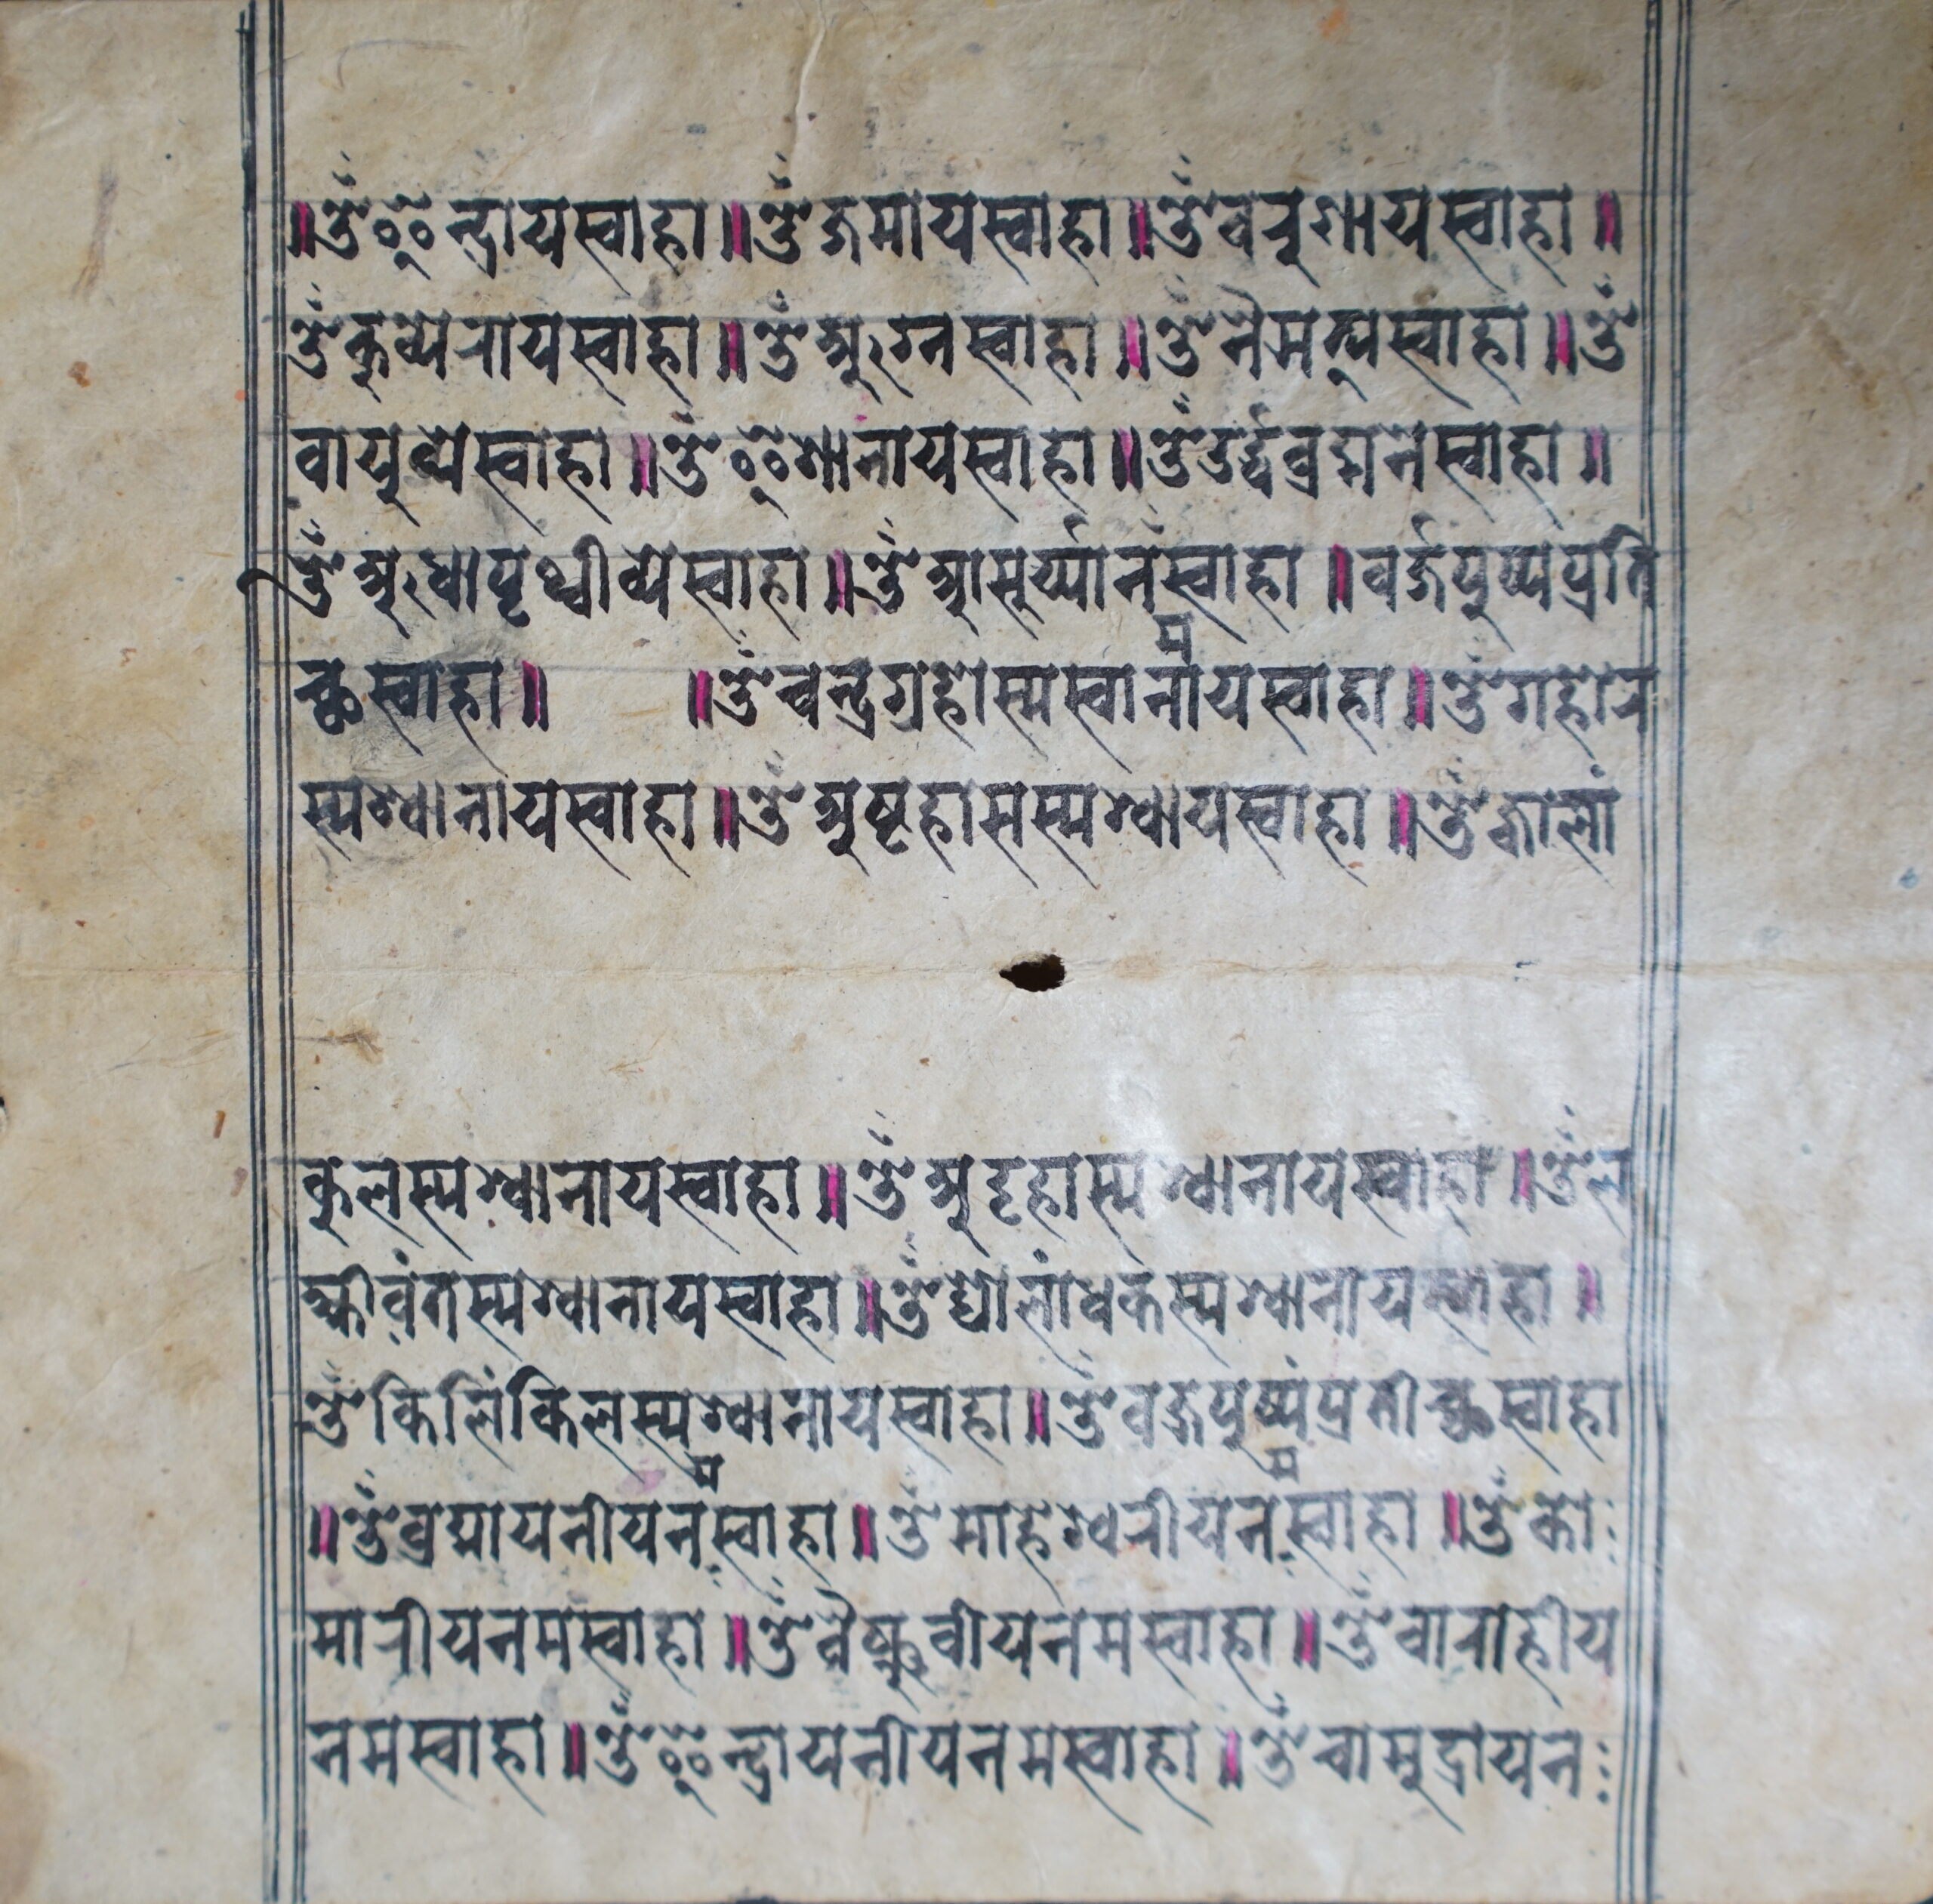 ॥ॐ इन्द्रायस्वाहा॥ॐ जमायस्वाहा॥ॐ वरुणायस्वाहा॥
ॐ कुव्येरायस्वाहा॥ॐ अग्नस्वाहा॥ॐ नैमृत्यस्वाहा॥ॐ
वायुव्येस्वाहा॥ॐ इशानायस्वाहा॥ॐ उर्द्धब्रह्मनेस्वाहा॥
ॐ अधापृथ्वीव्येस्वाहा॥ॐ आसूर्य्यानंस्वाहा॥वर्जपुष्पप्रति
च्छस्वाहा॥ ॥ॐ चन्द्रग्रहोस्मस्वानायस्वाहा॥ॐ गह्नोरे
स्मश्वानायस्वाहा॥ॐ अष्टहासस्मश्वायस्वाहा॥ॐ ज्वालां
कुलस्मश्वानायस्वाहा॥ॐ अट्टहास्मश्वानायस्वाहा॥ॐ ल
क्ष्मीवंतस्मश्वानायस्वाहा॥ॐ घोलांधकस्मश्वानायस्वाहा॥
ॐ किलिंकिलस्मश्वानायस्वाहा॥ॐ वज्रपुष्पंप्रतीच्छस्वाहा
॥ॐ ब्रह्मायनीयनमस्वाहा॥ॐ माहेश्वरीयनमस्वाहा॥ॐ को
मारीयनमस्वाहा॥ॐ वैष्णुवीयनमस्वाहा॥ॐ वाराहीय
नमस्वाहा॥ॐ इन्द्रायनीयनमस्वाहा॥ॐ चामुद्रायन